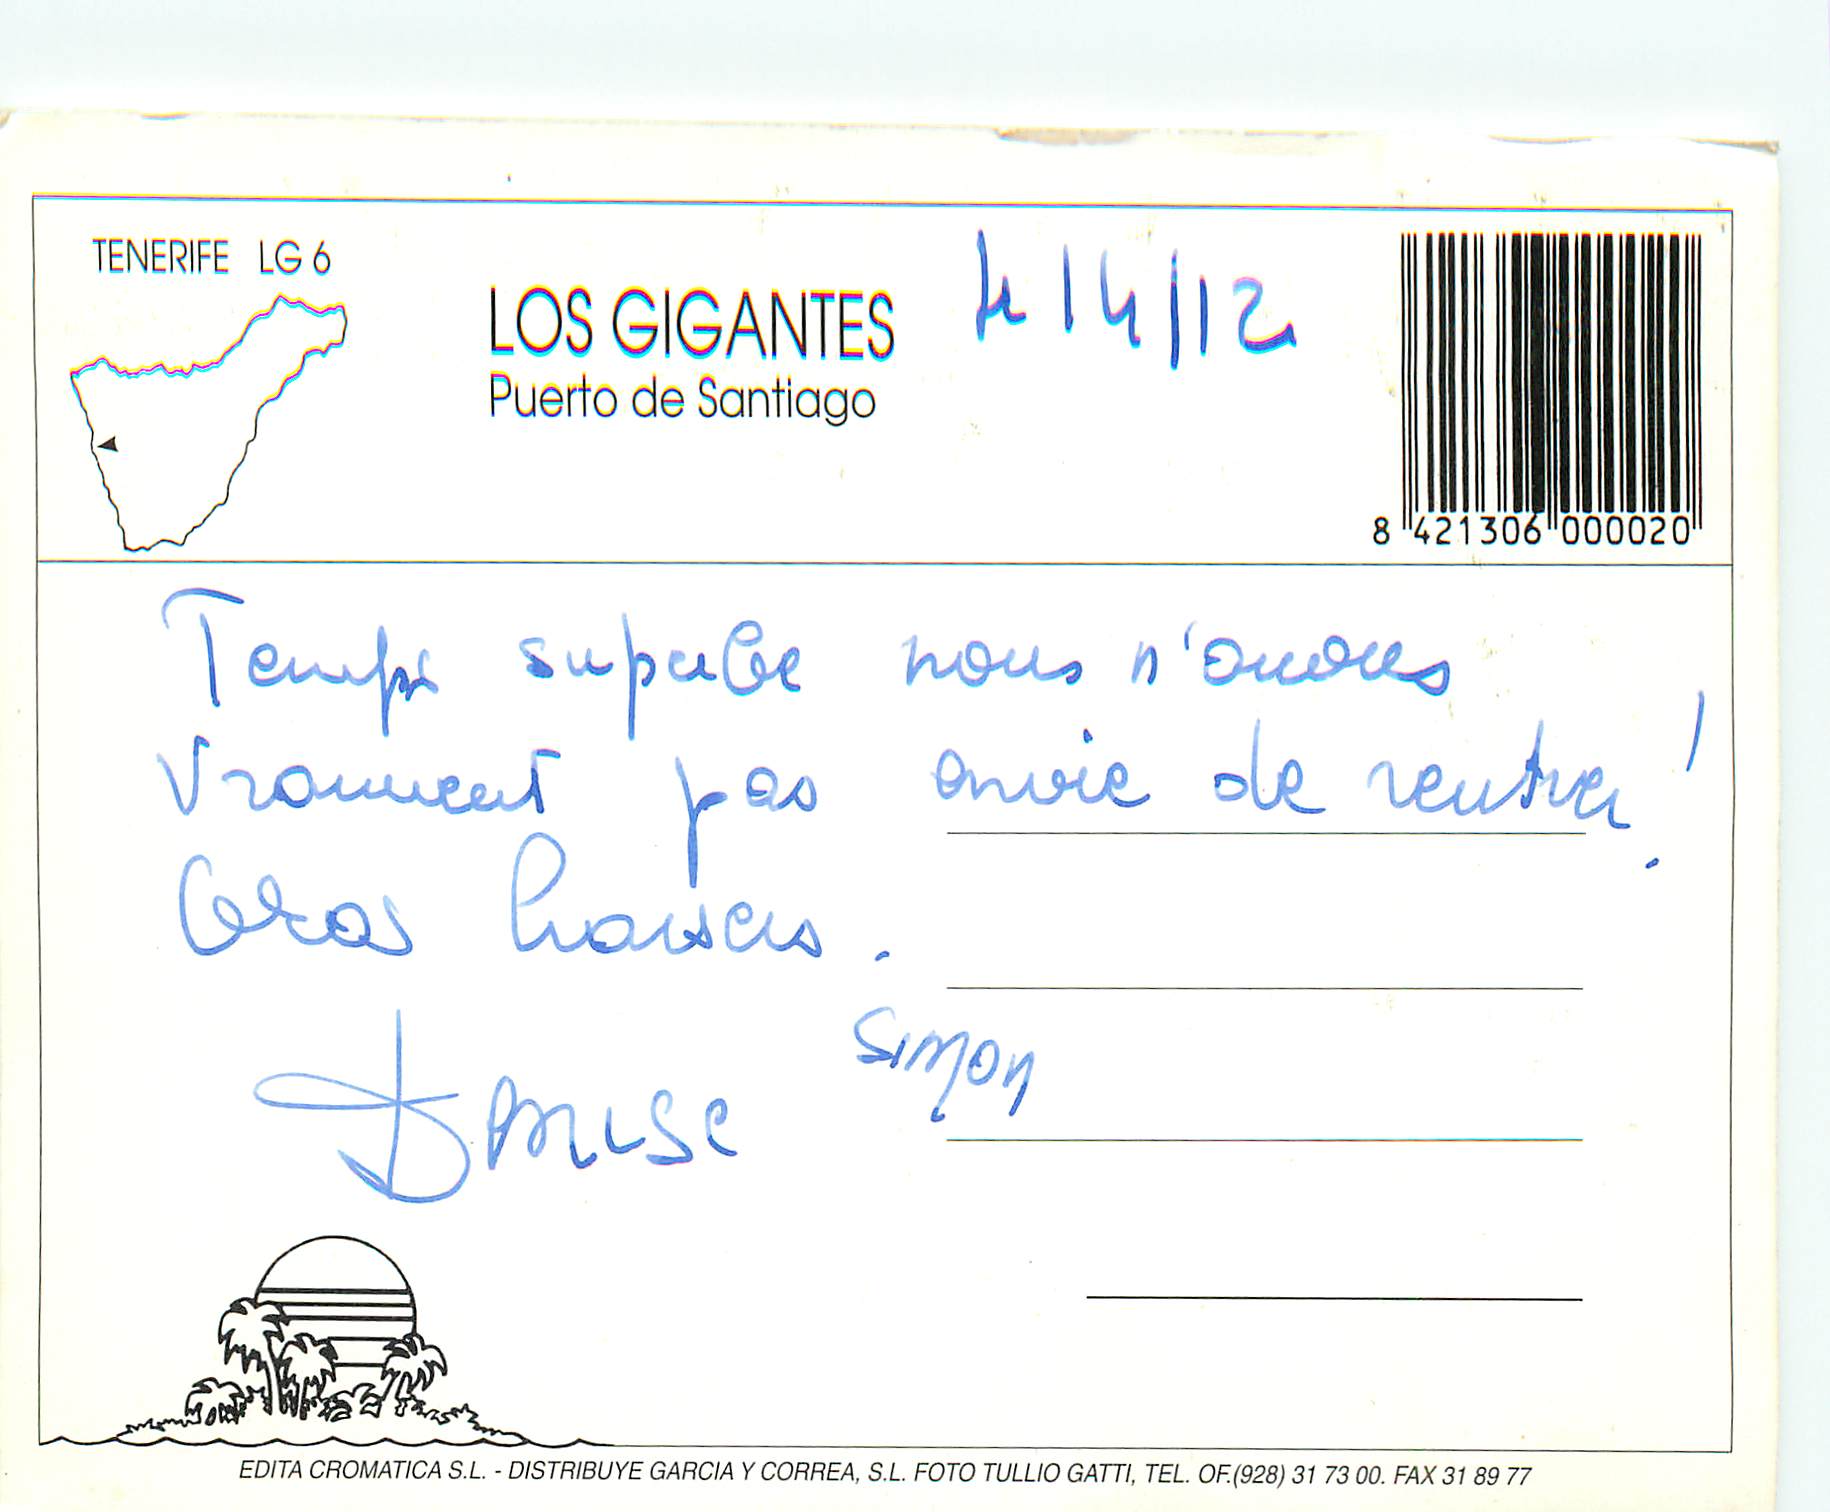 TENERIFE LG 6
LOS GIGANTES
Puerto de Santiago
4/4/12
8 421306 000020
Temps superbe nous n'avons
vraiment pas envie de rentrer !
Gros baisers.
Simon
Denise
EDITA CROMATICA S.L. - DISTRIBUYE GARCIA Y CORREA, S.L. FOTO TULLIO GATTI, TEL. OF.(928) 31 73 00. FAX 31 89 77